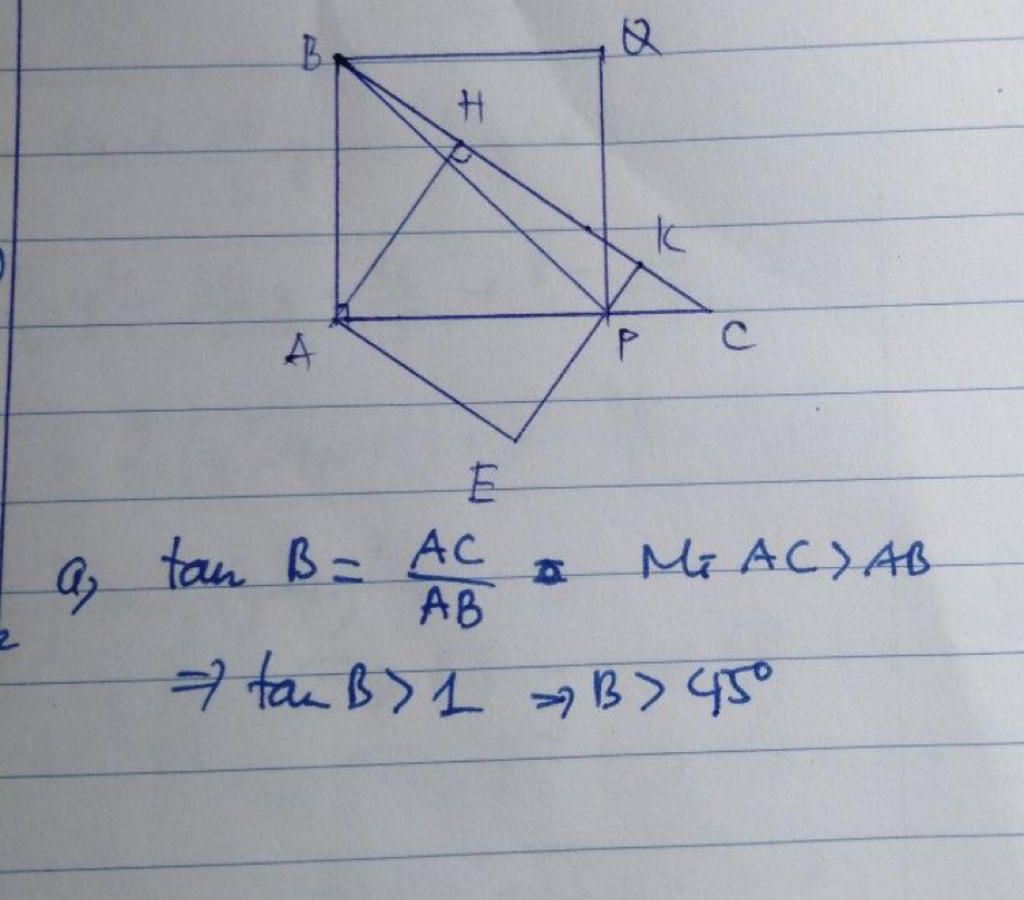 B Q
H
K
A P C
E
a, tan B = AC/AB Mà AC > AB
⇒ tan B > 1 ⇒ B > 45°